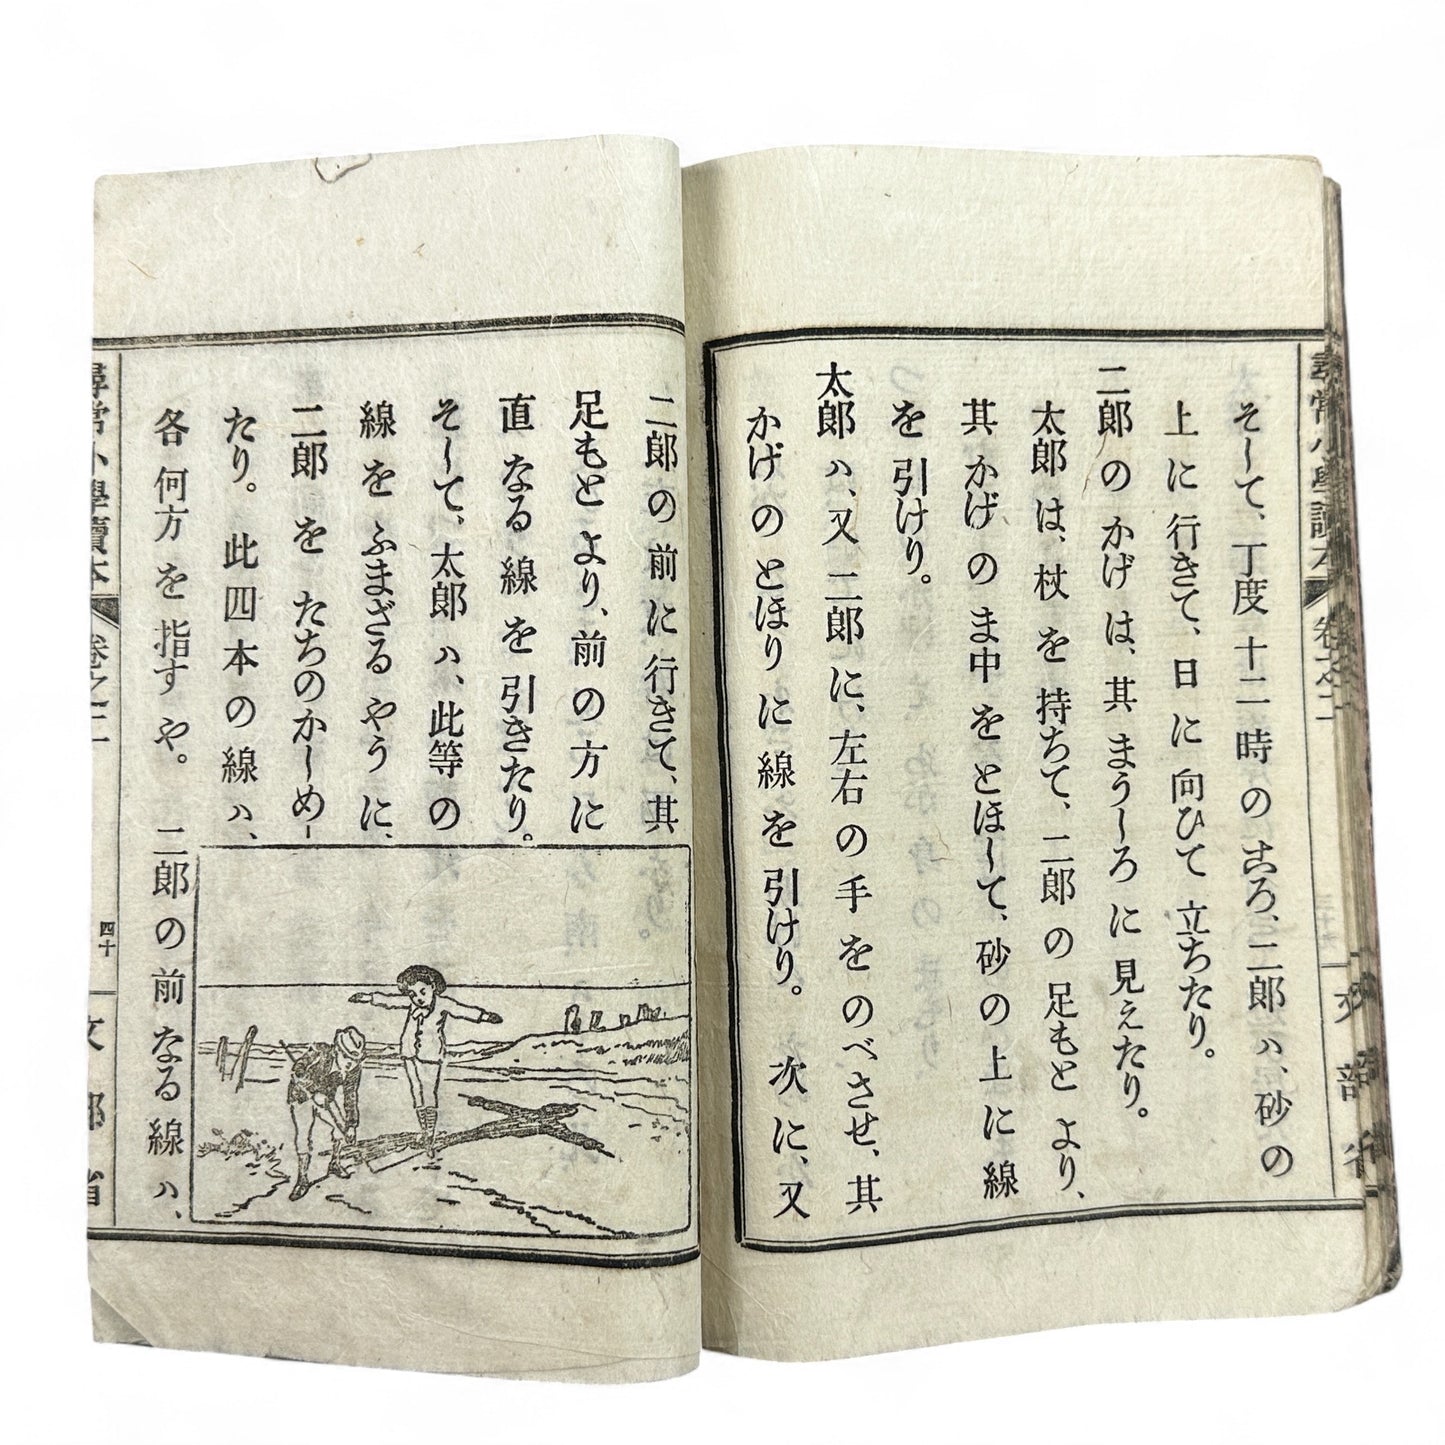 尋常小學讀本 卷之二
文部省
そして、丁度十二時のころ、二郎ハ、砂の
上に行きて、日に向ひて立ちたり。
二郎のかげは、其まうしろに見えたり。
太郎は、杖を持ちて、二郎の足もとより、
其かげのま中をとほして、砂の上に線
を引けり。
太郎ハ、又二郎に、左右の手をのべさせ、其
かげのとほりに線を引けり。次に、又
二郎の前に行きて、其
足もとより、前の方に
直なる線を引きたり。
そして、太郎ハ、此等の
線をふまざるやうに、
二郎をたちのかしめ
たり。此四本の線ハ、
各何方を指すや。二郎の前なる線ハ、
尋常小學讀本 卷之二 四十 文部省